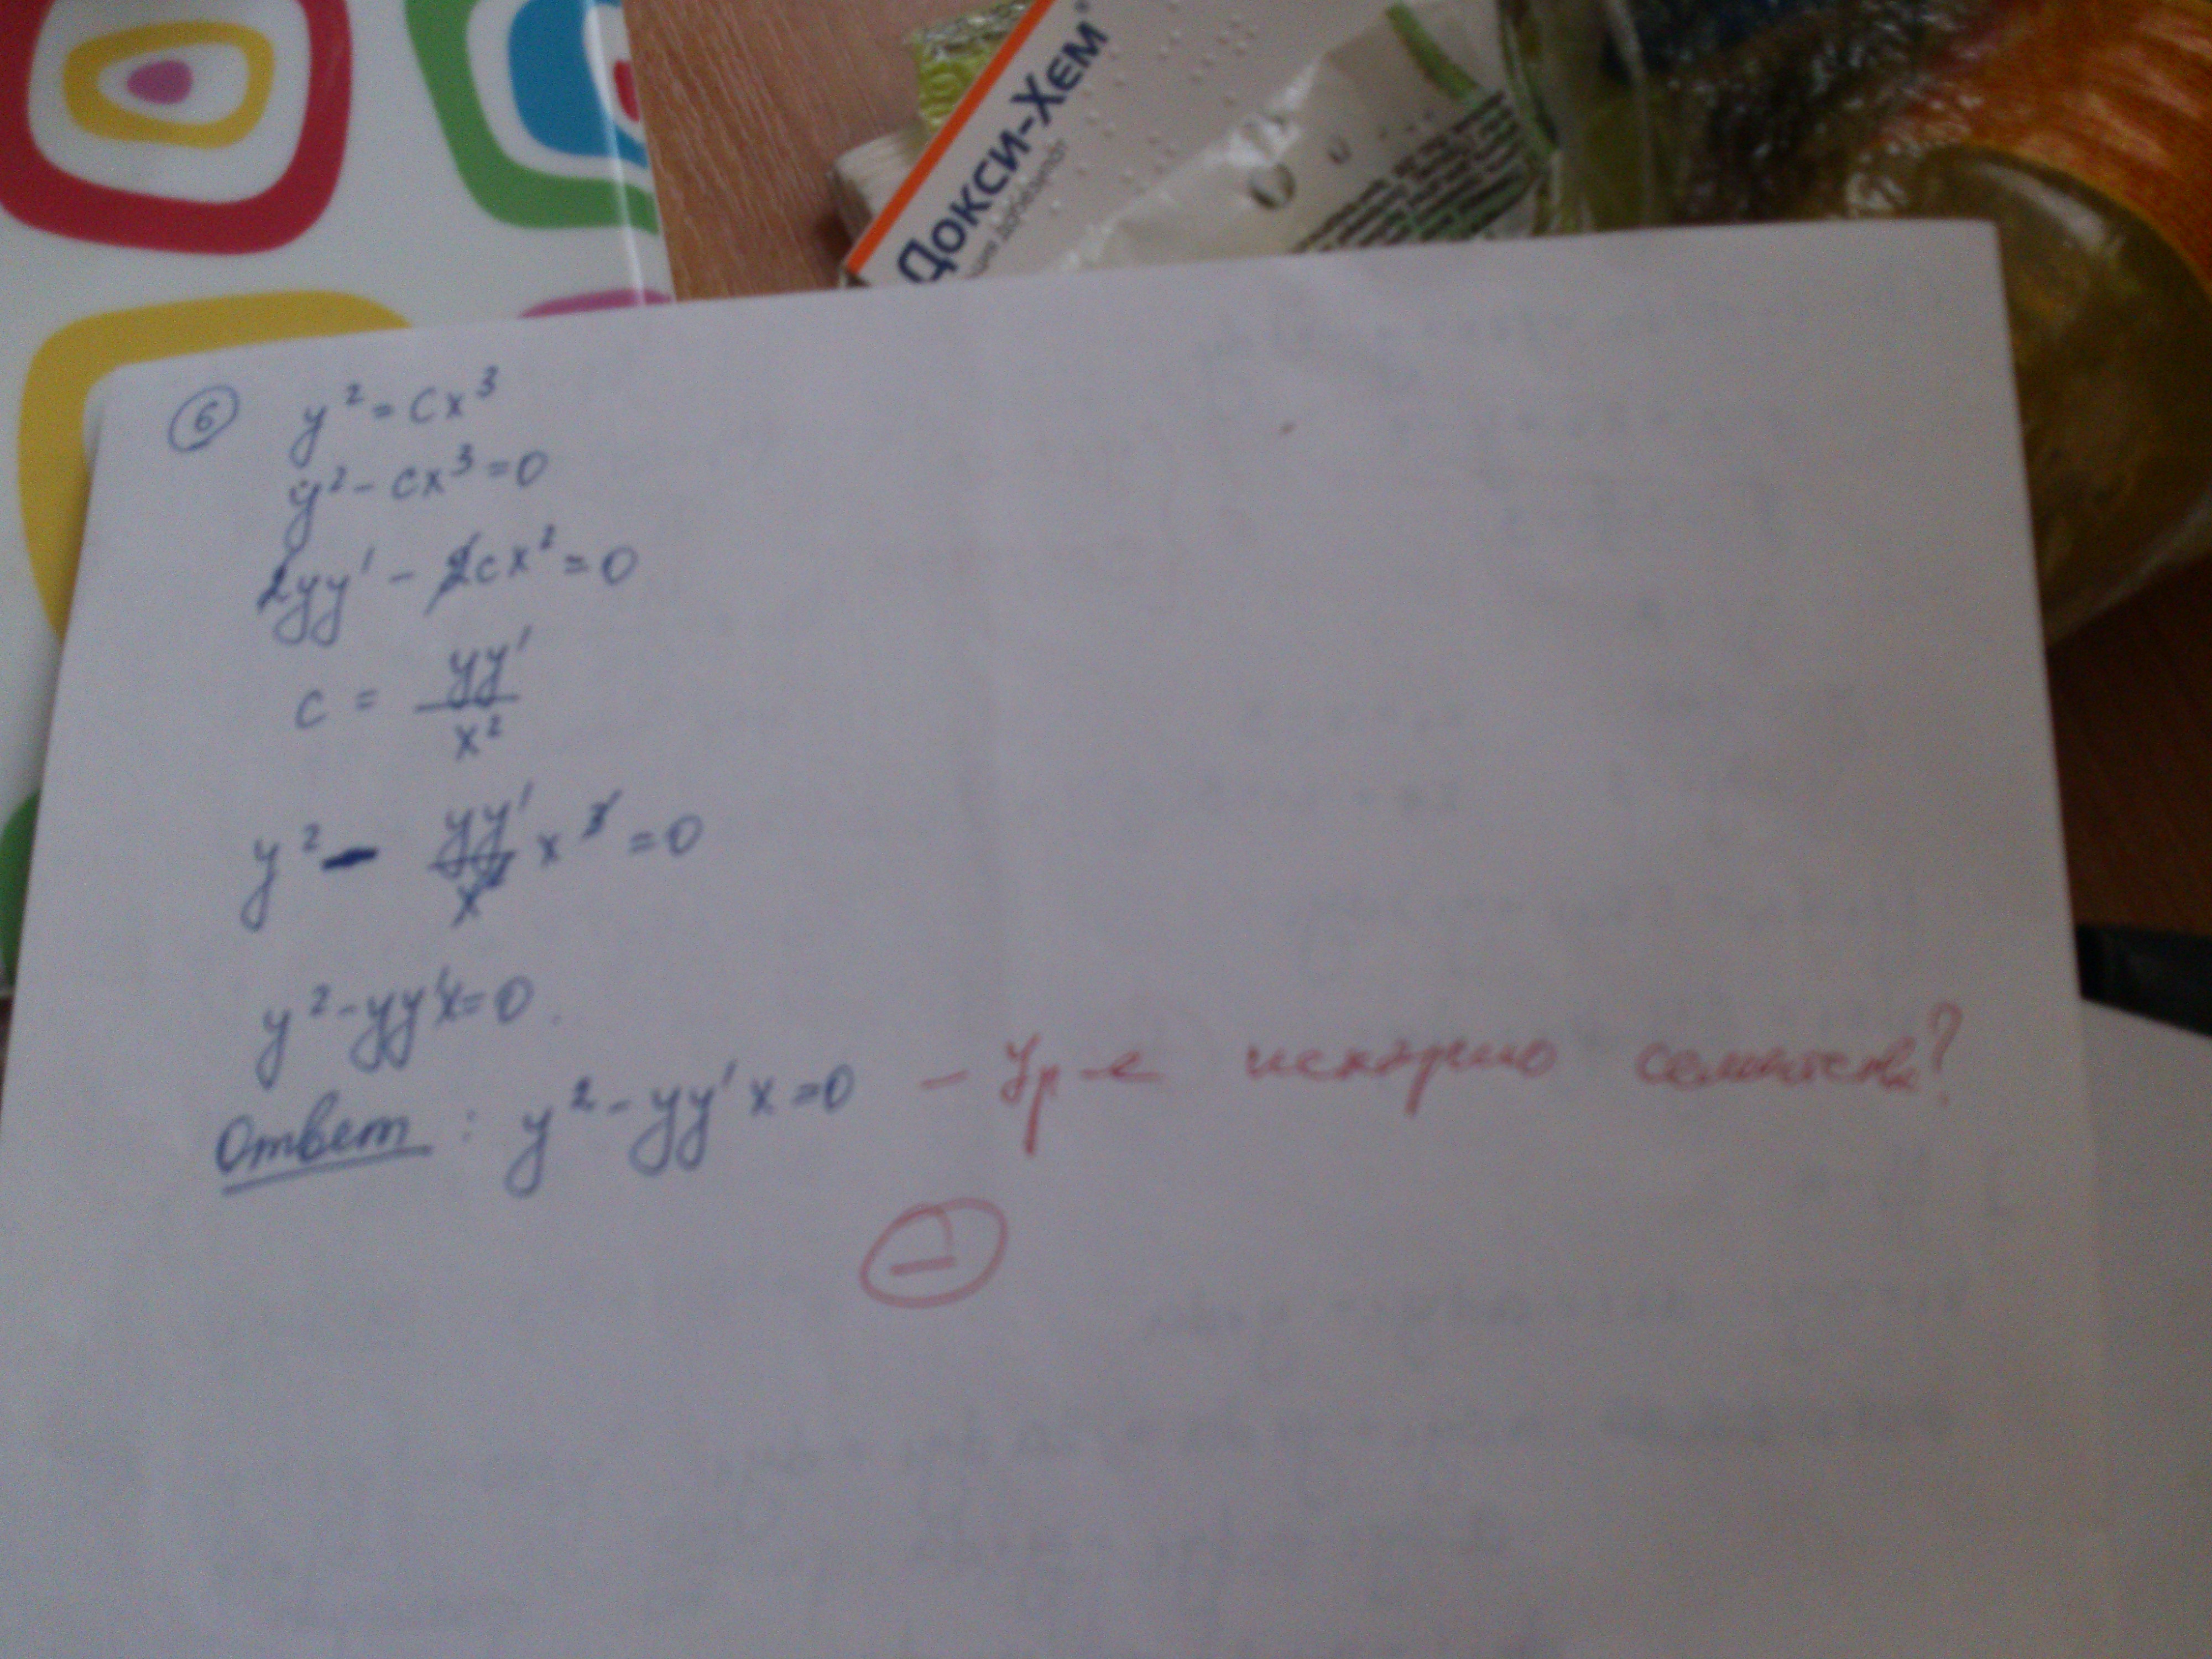 Докси-Хем®
6 y² = Cx³
y² - cx³ = 0
2yy' - 2cx² = 0
c = yy' / x²
y² - yy' / x² x³ = 0
y² - yy'x = 0.
Ответ: y² - yy'x = 0 - Ур-е исходного семейства?